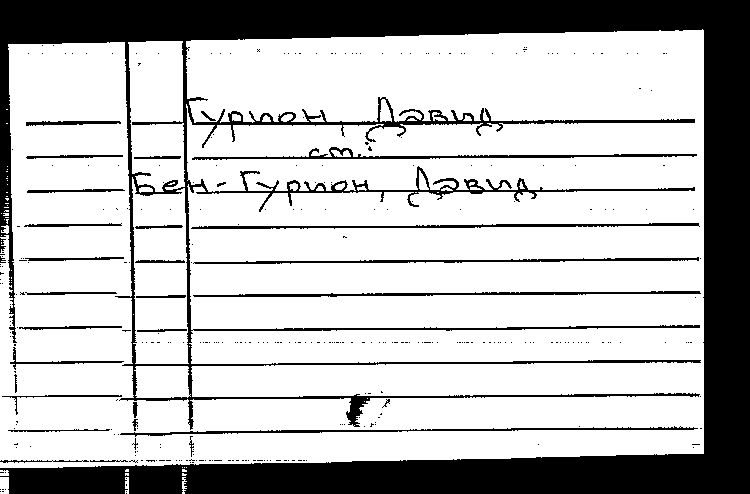 Гурион, Давид
см.:
Бен-Гурион, Давид.